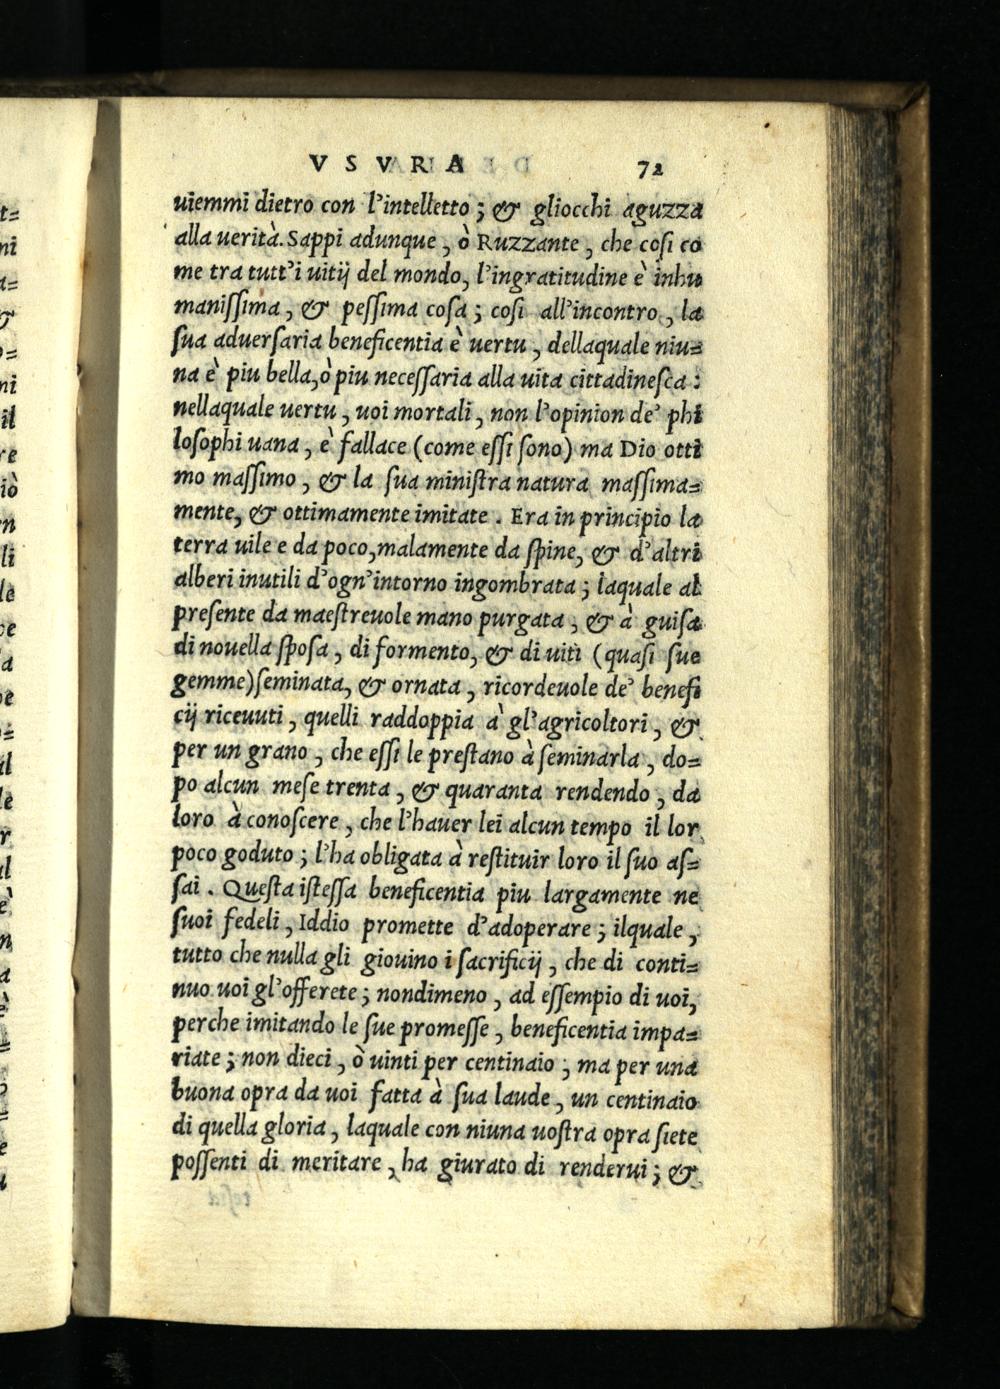 VSVRA 72
uiemmi dietro con l'intelletto; & gliocchi aguzza
alla uerità. Sappi adunque, ò Ruzzante, che cosi co
me tra tutt'i uitij del mondo, l'ingratitudine è inhu
manissima, & pessima cosa; cosi all'incontro, la
sua aduersaria beneficentia è uertu, dellaquale niu=
na è piu bella, ò piu necessaria alla uita cittadinesca:
nellaquale uertu, uoi mortali, non l'opinion de' phi
losophi uana, è fallace (come essi sono) ma Dio otti
mo massimo, & la sua ministra natura massima=
mente, & ottimamente imitate. Era in principio la
terra uile e da poco, malamente da spine, & d'altri
alberi inutili d'ogn'intorno ingombrata; laquale al
presente da maestreuole mano purgata, & à guisa
di nouella sposa, di formento, & di uiti (quasi sue
gemme) seminata, & ornata, ricordeuole de' benefi
cij riceuuti, quelli raddoppia à gl'agricoltori, &
per un grano, che essi le prestano à seminarla, do=
po alcun mese trenta, & quaranta rendendo, da
loro à conoscere, che l'hauer lei alcun tempo il lor
poco goduto; l'ha obligata à restituir loro il suo as=
sai. Questa istessa beneficentia piu largamente ne
suoi fedeli, Iddio promette d'adoperare; ilquale,
tutto che nulla gli giouino i sacrificij, che di conti=
nuo uoi gl'offerete; nondimeno, ad essempio di uoi,
perche imitando le sue promesse, beneficentia impa=
riate; non dieci, ò uinti per centinaio; ma per una
buona opra da uoi fatta à sua laude, un centinaio
di quella gloria, laquale con niuna uostra opra siete
possenti di meritare, ha giurato di renderui; &